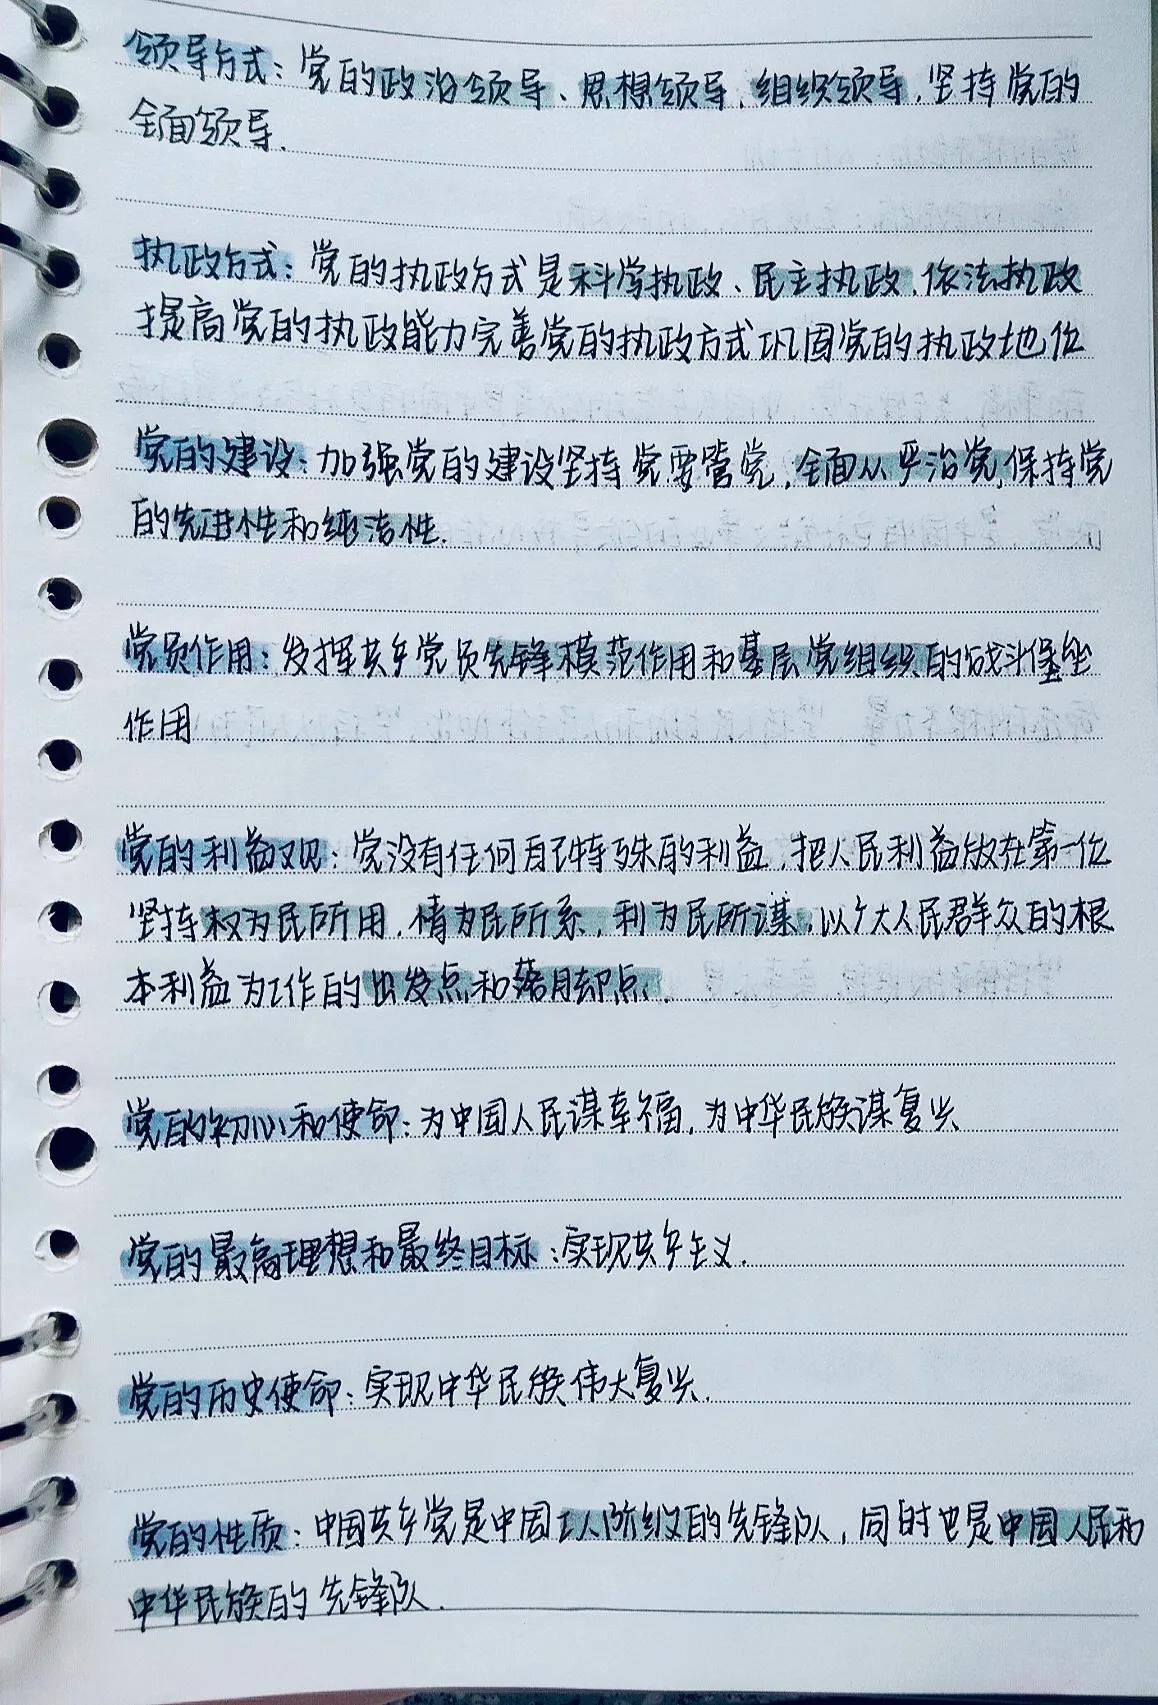 领导方式：党的政治领导、思想领导、组织领导，坚持党的
全面领导．
执政方式：党的执政方式是科学执政、民主执政，依法执政
提高党的执政能力完善党的执政方式巩固党的执政地位
党的建设：加强党的建设坚持党要管党，全面从严治党，保持党
的先进性和纯洁性．
党员作用：发挥共产党员先锋模范作用和基层党组织的战斗堡垒
作用
党的利益观：党没有任何自己特殊的利益，把人民利益放在第一位
坚持权为民所用，情为民所系，利为民所谋，以广大人民群众的根
本利益为工作的出发点和落脚点．
党的初心和使命：为中国人民谋幸福，为中华民族谋复兴
党的最高理想和最终目标：实现共产主义．
党的历史使命：实现中华民族伟大复兴．
党的性质：中国共产党是中国工人阶级的先锋队，同时也是中国人民和
中华民族的先锋队．